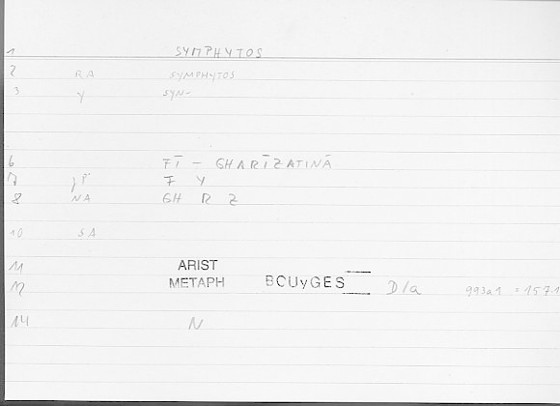 1 SYMPHYTOS
2 RA SYMPHYTOS
3 Y SYN-
6 FĪ - GHARĪZATINĀ
7 jī F Y
8 NA GH R Z
10 SA
11 ARIST
12 METAPH BOUyGES D/a 993a1 = 1571
14 N